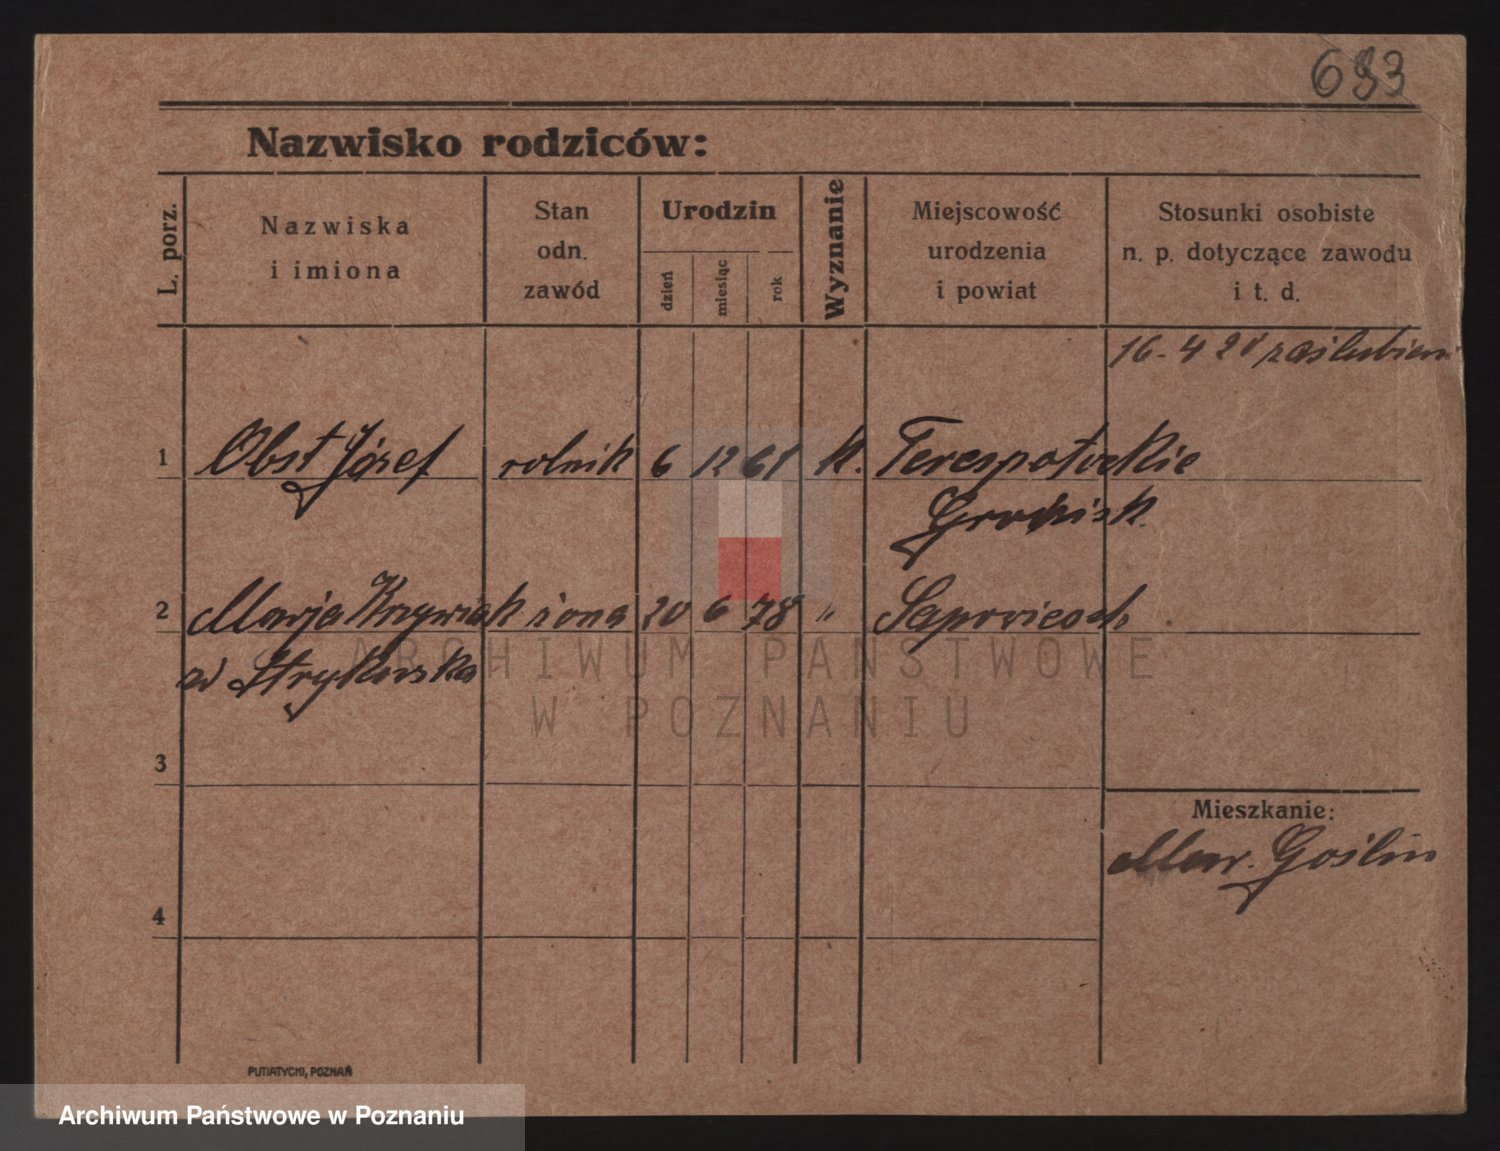 693
Nazwisko rodziców:
L. porz.
Nazwiska
i imiona
Stan
odn.
zawód
Urodzin
dzień
miesiąc
rok
Wyznanie
Miejscowość
urodzenia
i powiat
Stosunki osobiste
n. p. dotyczące zawodu
i t. d.
16-4 21 zaślubieni
1 Obst Józef rolnik 6 12 61 k. Terespotockie
Grodzisk.
2 Marja Krzywiak żona 20 6 78 " Sapowicach
Strykowska
ARCHIWUM PAŃSTWOWE
W POZNANIU
3
Mieszkanie:
Mur. Goślin
4
PUTIATYCKI, POZNAŃ
Archiwum Państwowe w Poznaniu